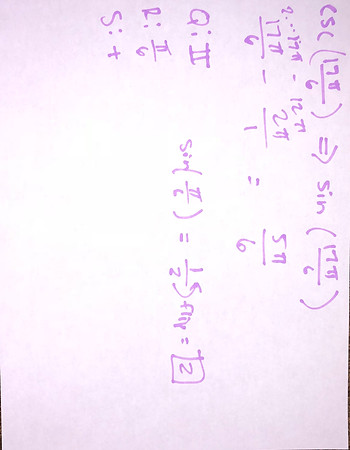 csc(17π/6) ⇒ sin(17π/6)
17π/6 - 2π/1 = 5π/6
12π
Q: II
R: π/6
S: +
sin(π/6) = 1/2 flip = +2